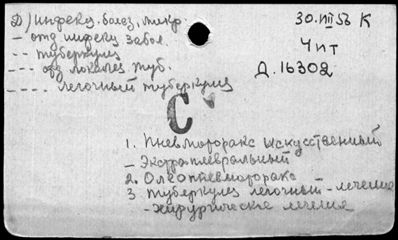 Д) инфекц. болез, микр.
30.VIII 53 К
- отд инфекц забол.
-- туберкулез
Чит
--- отд локализ туб.
Д.16302
---- легочный туберкулез
С
1. Пневмоторакс искусственный
- Экстраплевральный
2. Олеопневмоторакс
3. туберкулез легочный - лечение
- хирургическое лечение